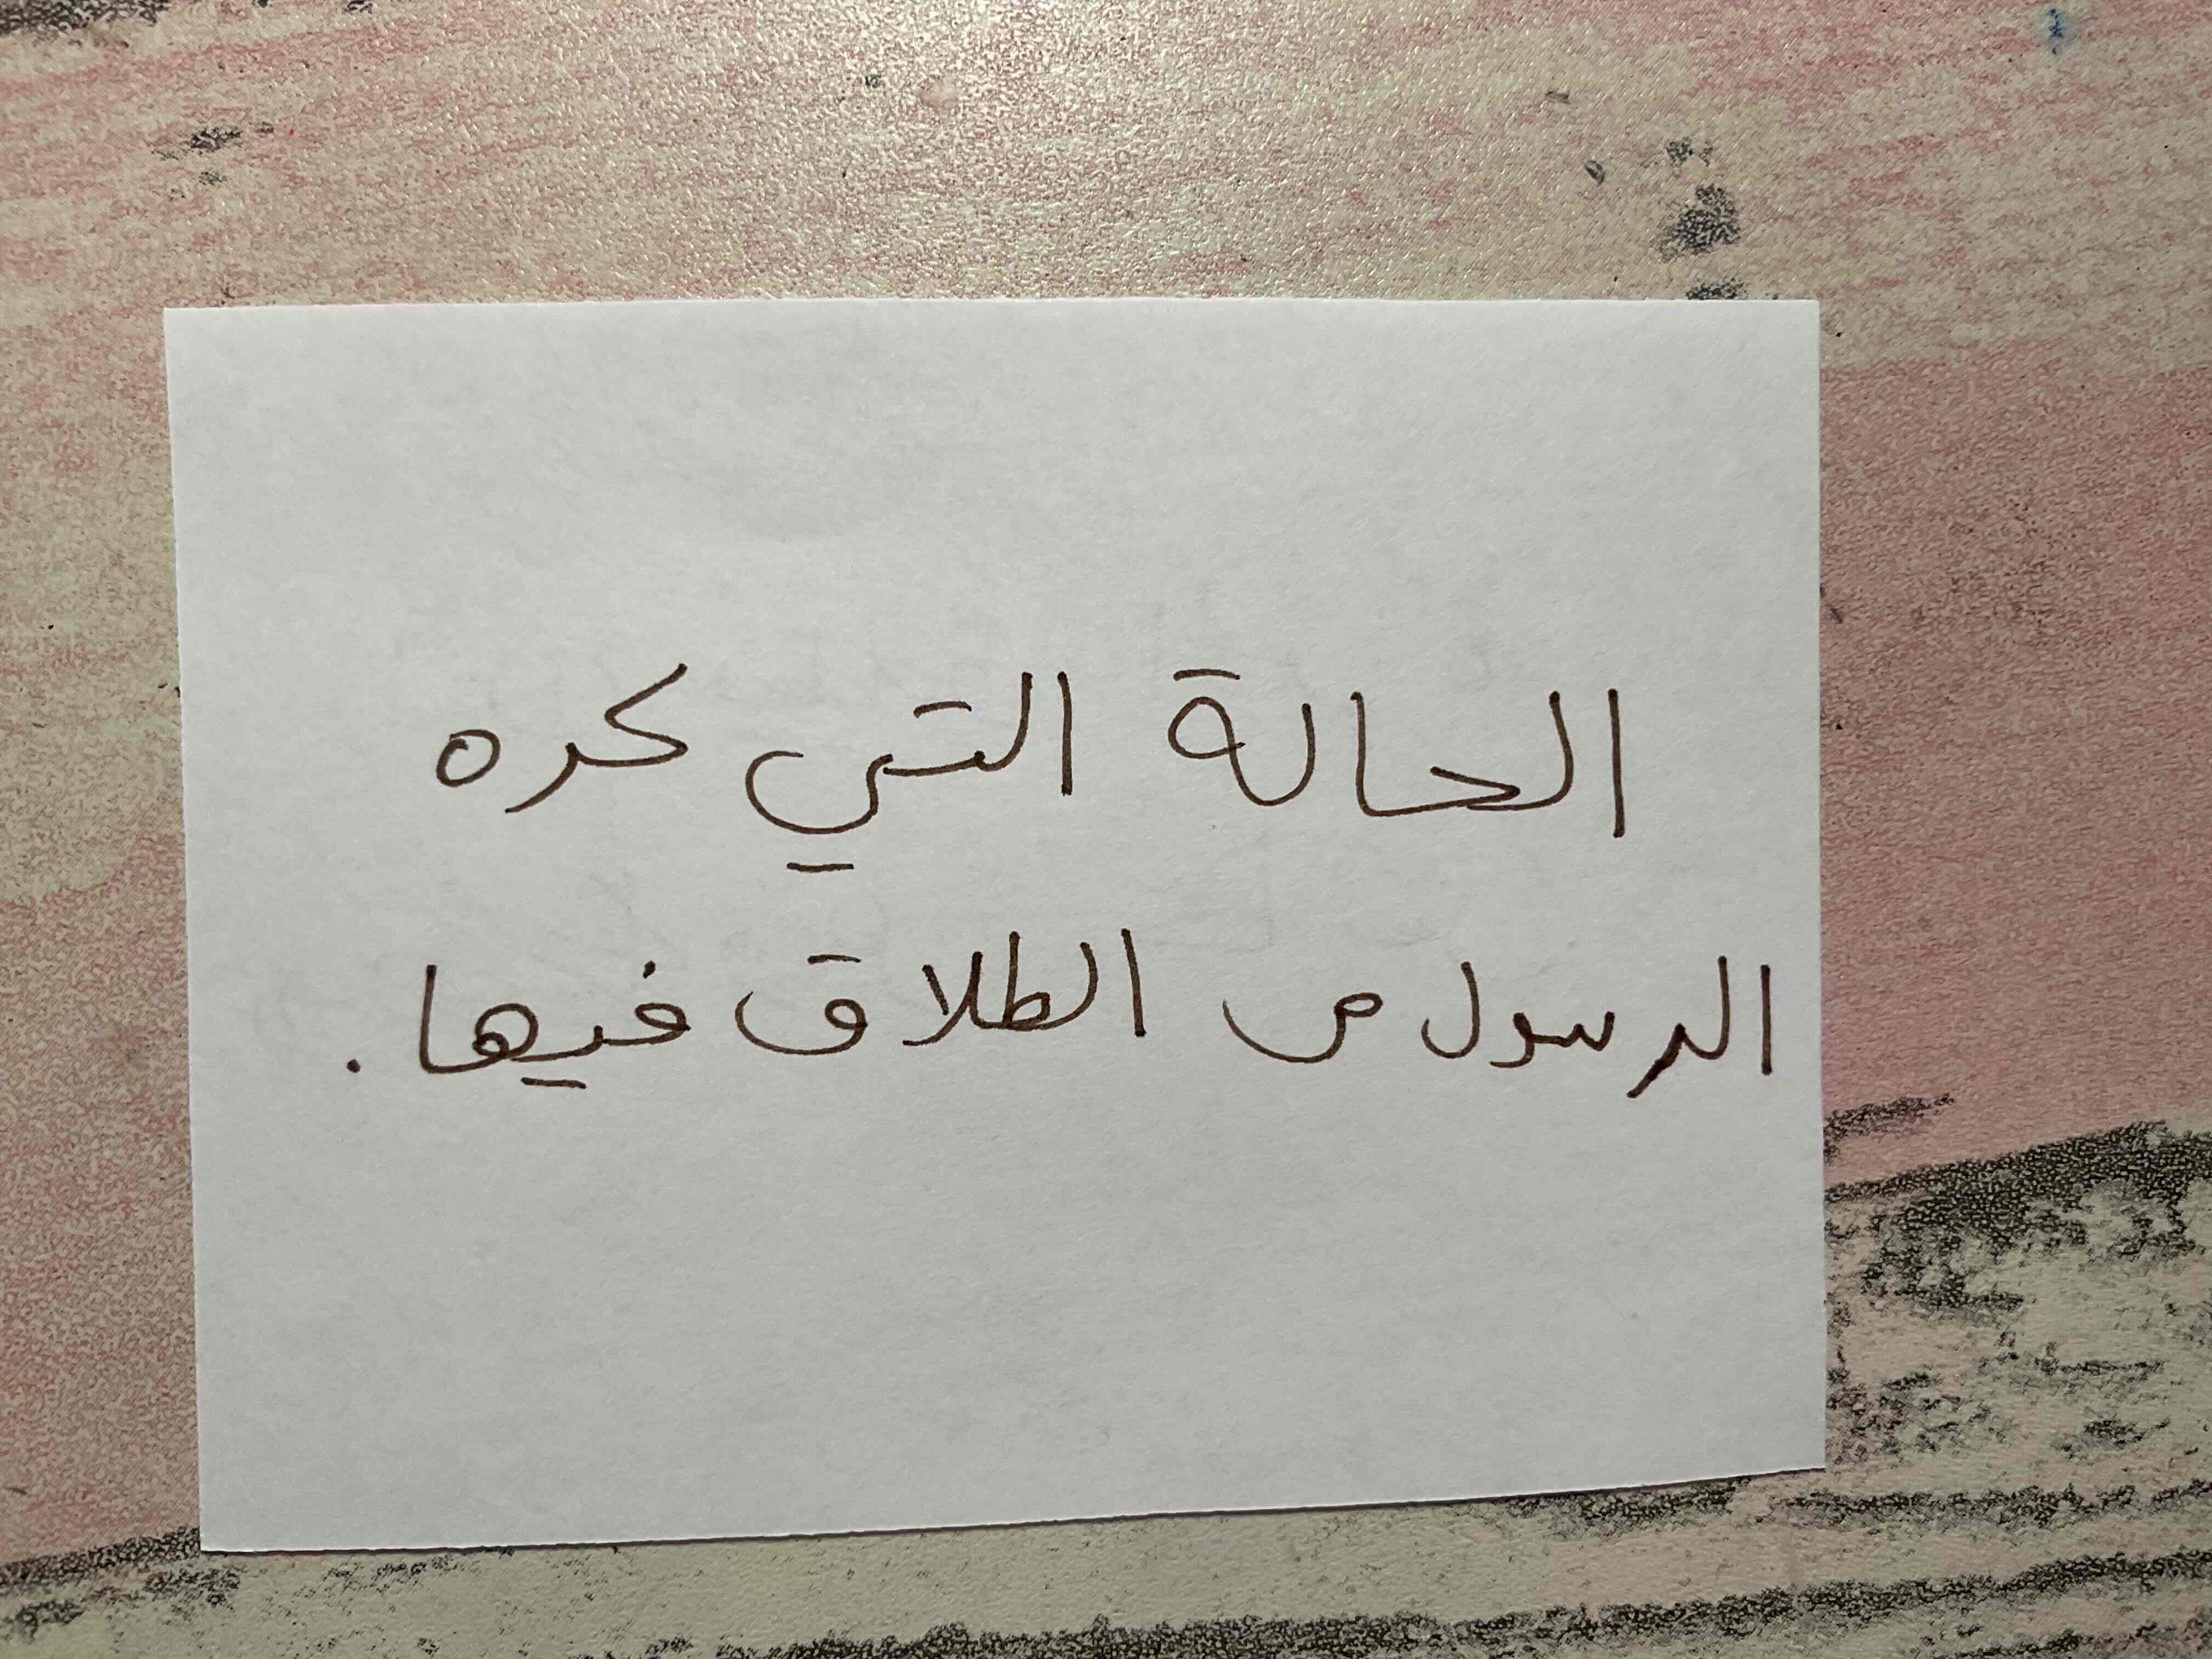 الحالة التي كره
الرسول ص الطلاق فيها.